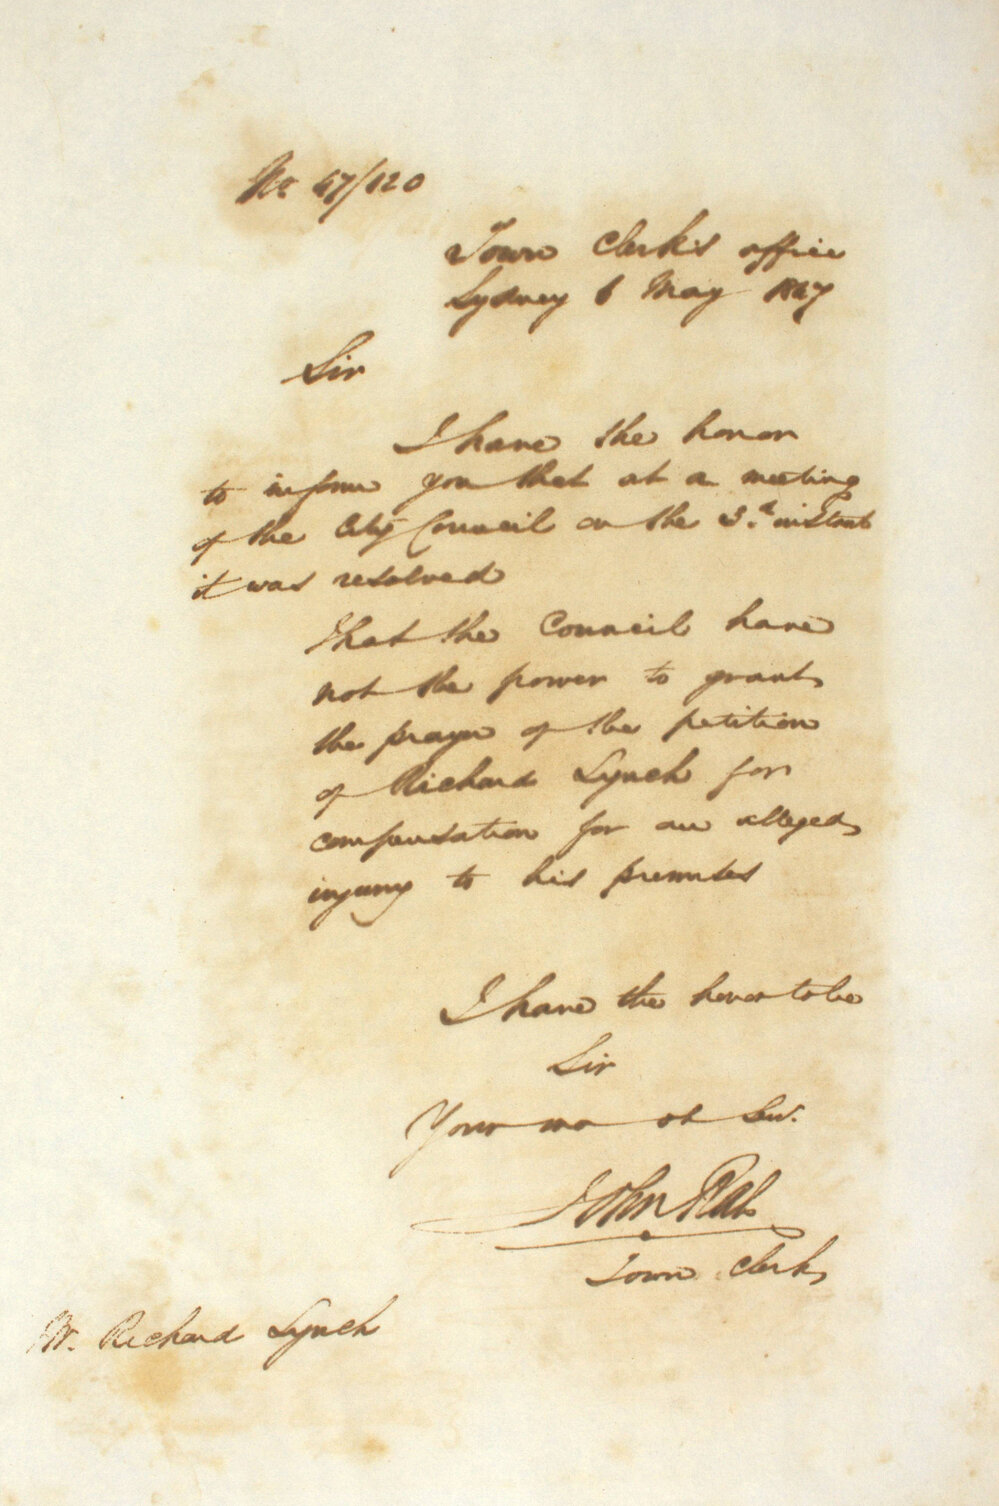 No 47/120
Town Clerk's office
Sydney 6 May 1847
Sir
I have the honor
to inform you that at a meeting
of the City Council on the 3.d instant
it was resolved
That the Council have
not the power to grant
the prayer of the petition
of Richard Lynch for
compensation for an alleged
injury to his premises
I have the honor to be
Sir
Your mo ob Ser.
John Rae
Town Clerk
Mr. Richard Lynch